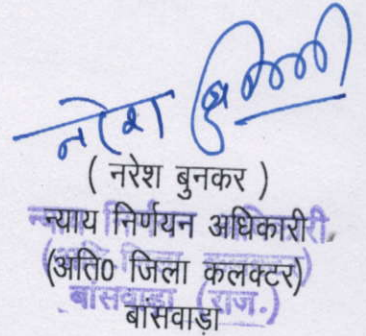 नरेश बुनकर
( नरेश बुनकर )
न्याय निर्णयन अधिकारी
(अति0 जिला कलक्टर)
बांसवाड़ा (राज.)
बांसवाड़ा